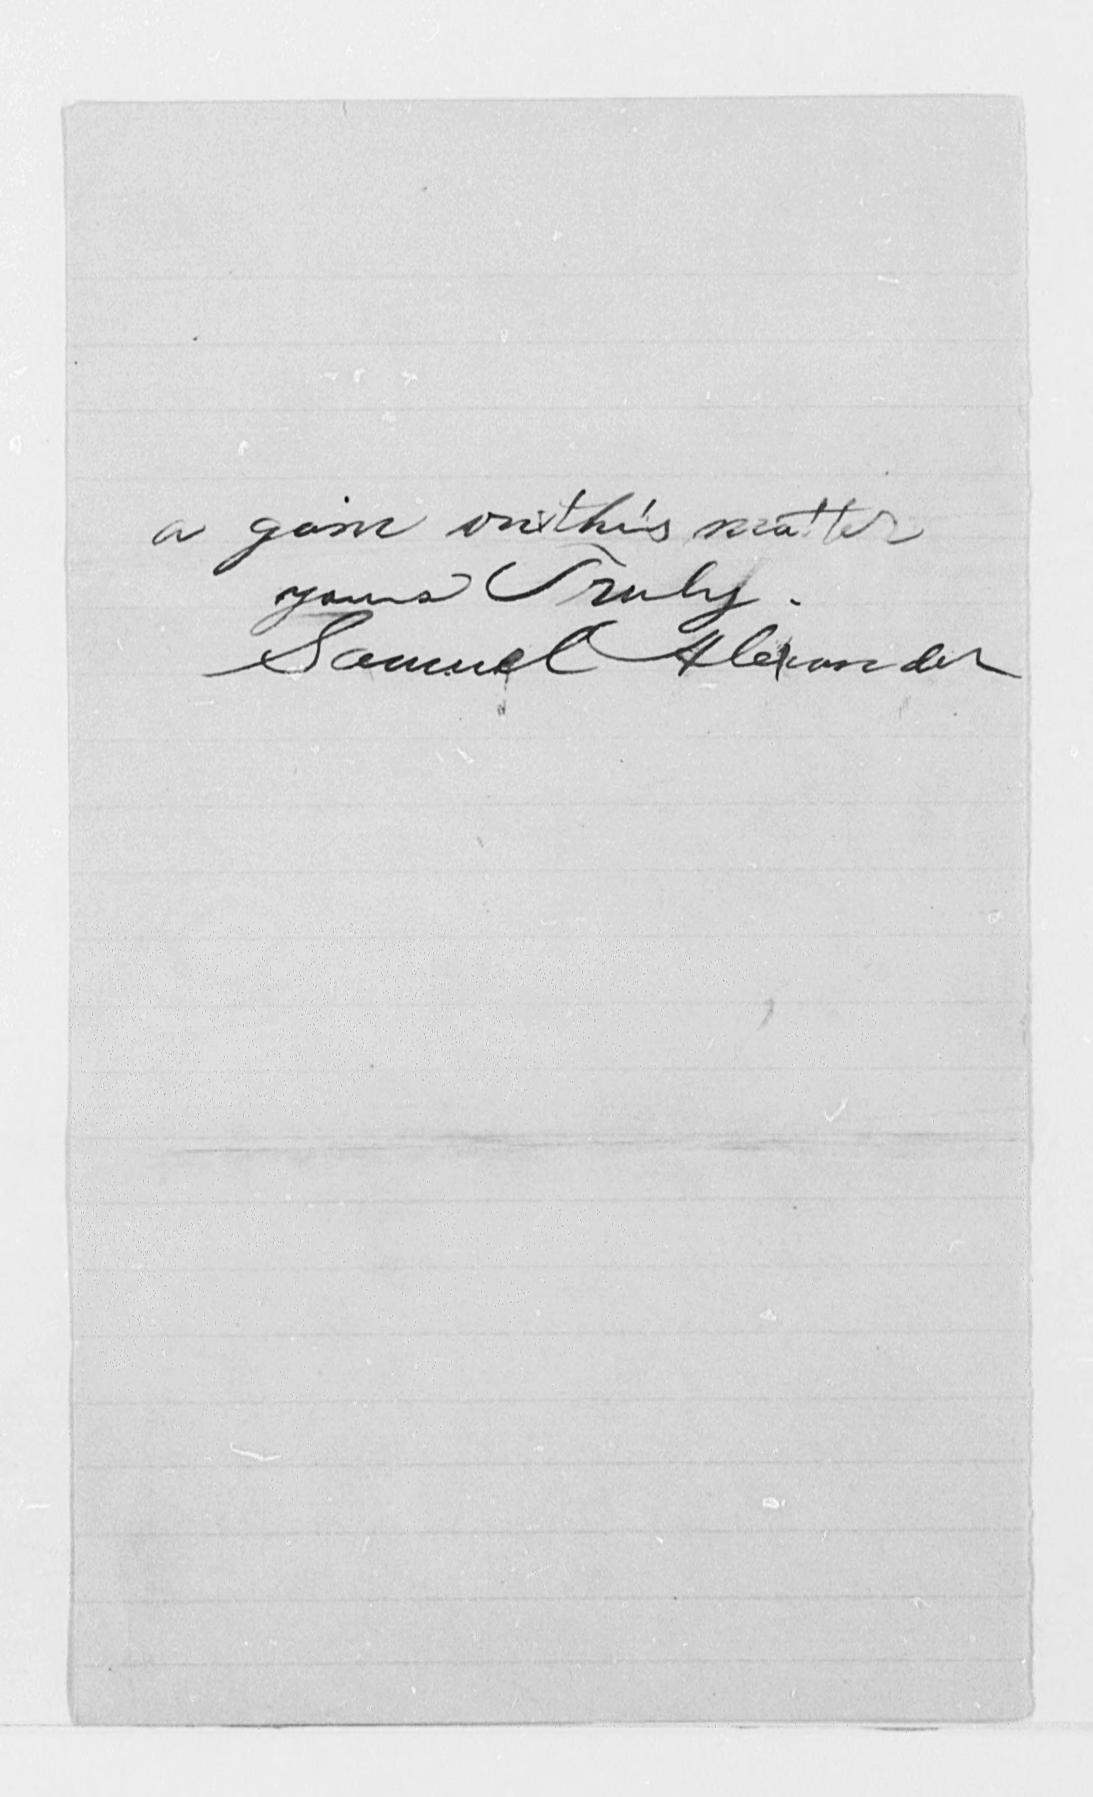 a gain on this matter
yours Truly.
Samuel Alexander